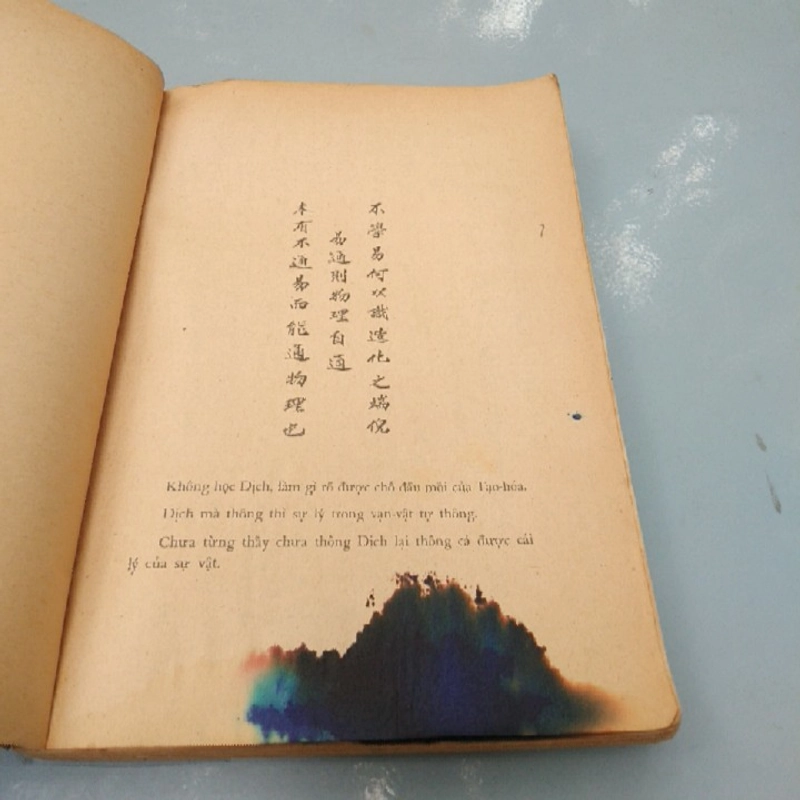 不學易何以識造化之端倪
易通則物理自通
未有不通易而能通物理也
Không học Dịch, làm gì rõ được chỗ đầu mối của Tạo-hóa.
Dịch mà thông thì sự lý trong vạn-vật tự thông.
Chưa từng thấy chưa thông Dịch lại thông cả được cái
lý của sự vật.